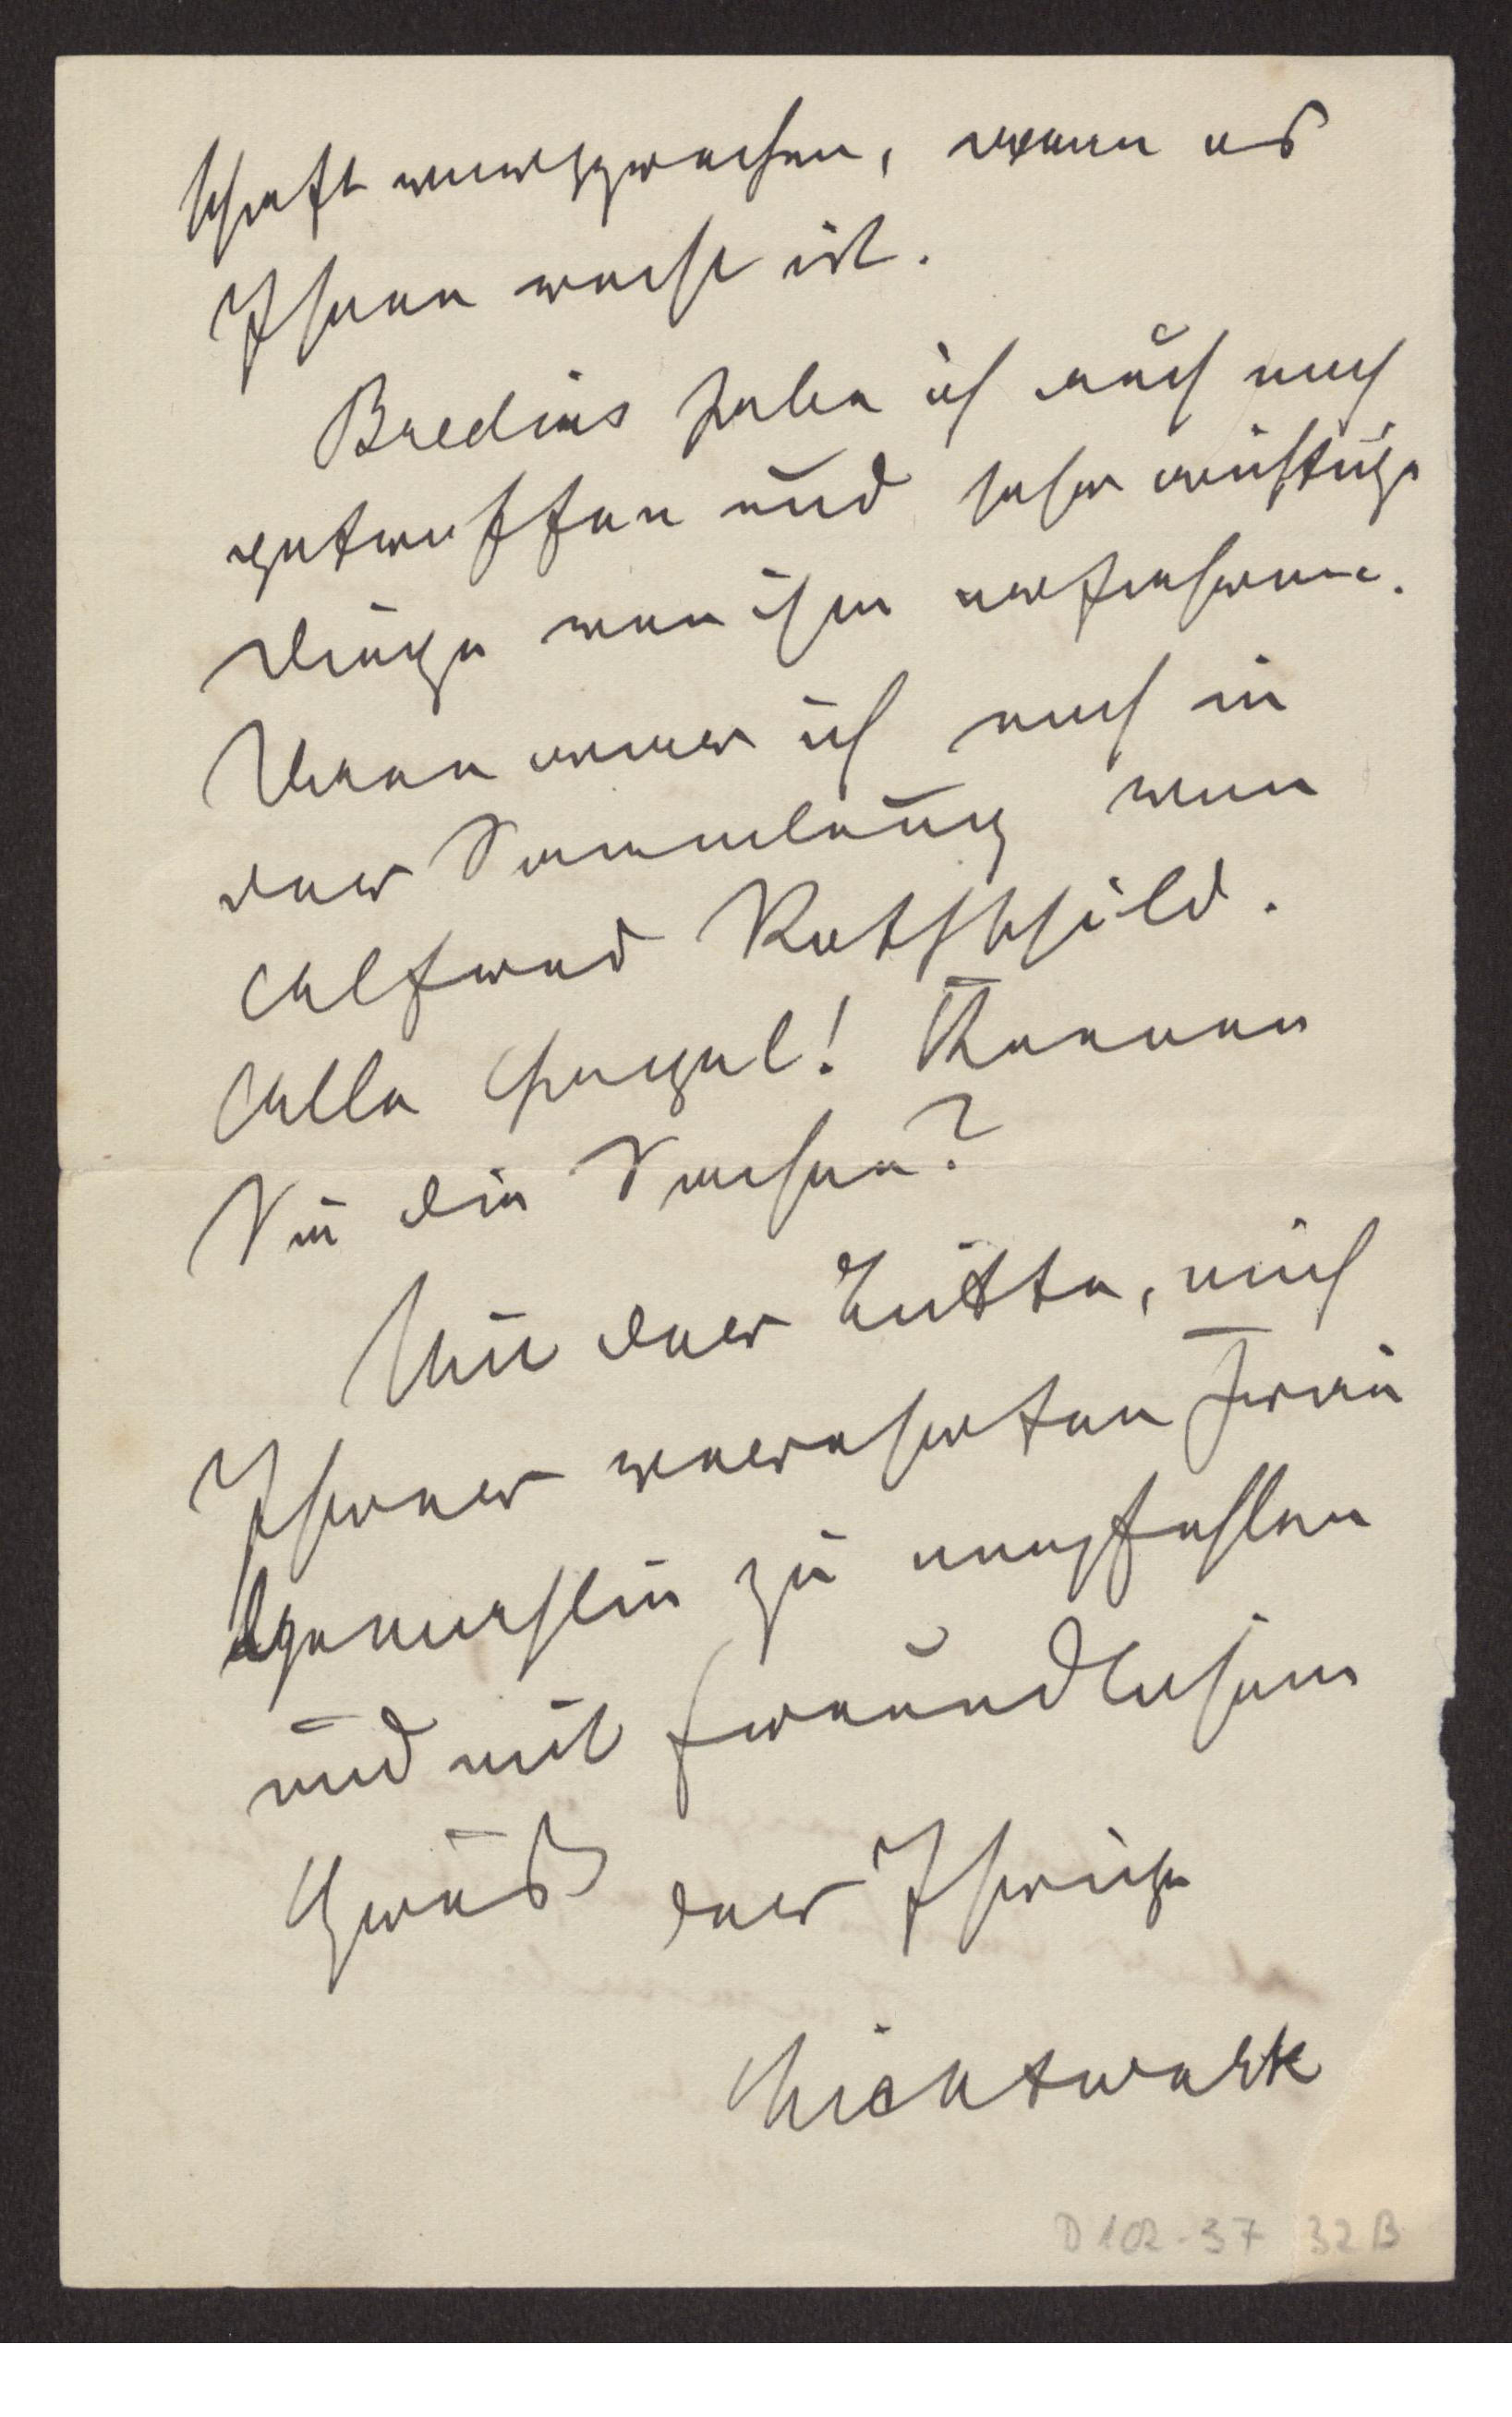 schaft vorsprechen, wenn es
Ihnen recht ist.
Bredius habe ich auch noch
getroffen und sehr wichtige
Dinge von ihm erfahren.
Dann war ich noch in
der Sammlung von
Alfred Rothschild.
Alle Hagel! Kennen
Sie die Sachen?
Mit der Bitte, mich
Ihrer verehrten Frau
Gemahlin zu empfehlen
und mit freundlichem
Gruß der Ihrige
Lichtwark
D 102-37 32B